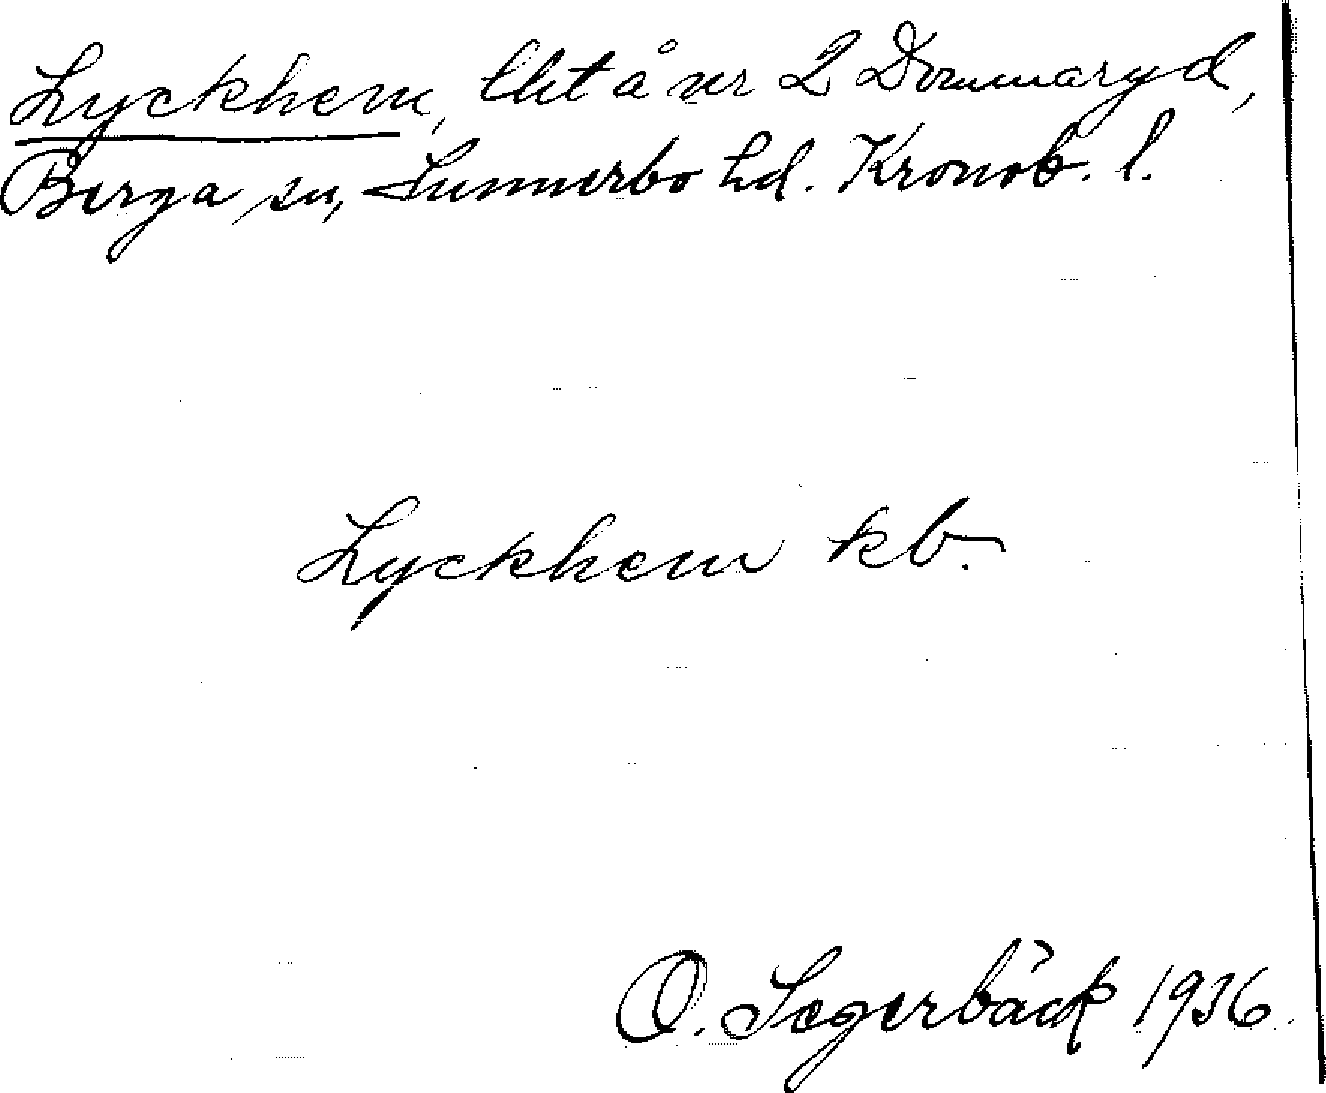 Lyckhem, lht å nr 2 Dommaryd,
Berga sn, Sunnerbo hd. Kronob. l.
Lyckhem kb.
O. Segerbäck 1936